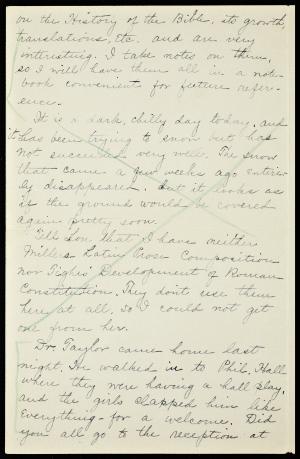 on the History of the Bible, its growth,
translations, etc. and are very
interesting. I take notes on them,
so I will have them all in a note-
book convenient for future refer-
ence.
It is a dark, chilly day today, and
it has been trying to snow but has
not succeeded very well. The snow
that came a few weeks ago entire-
ly disappeared. But it looks as
if the ground would be covered
again pretty soon.
Tell Lon that I have neither
Millers Latin Prose Composition
nor Tighs' Development of Roman
Constitution. They don't use them
here at all, so I could not get
one from her.
Dr. Taylor came home last
night. He walked in to Phil. Hall
where they were having a hall play,
and the girls clapped him like
everything - for a welcome. Did
you all go to the reception at